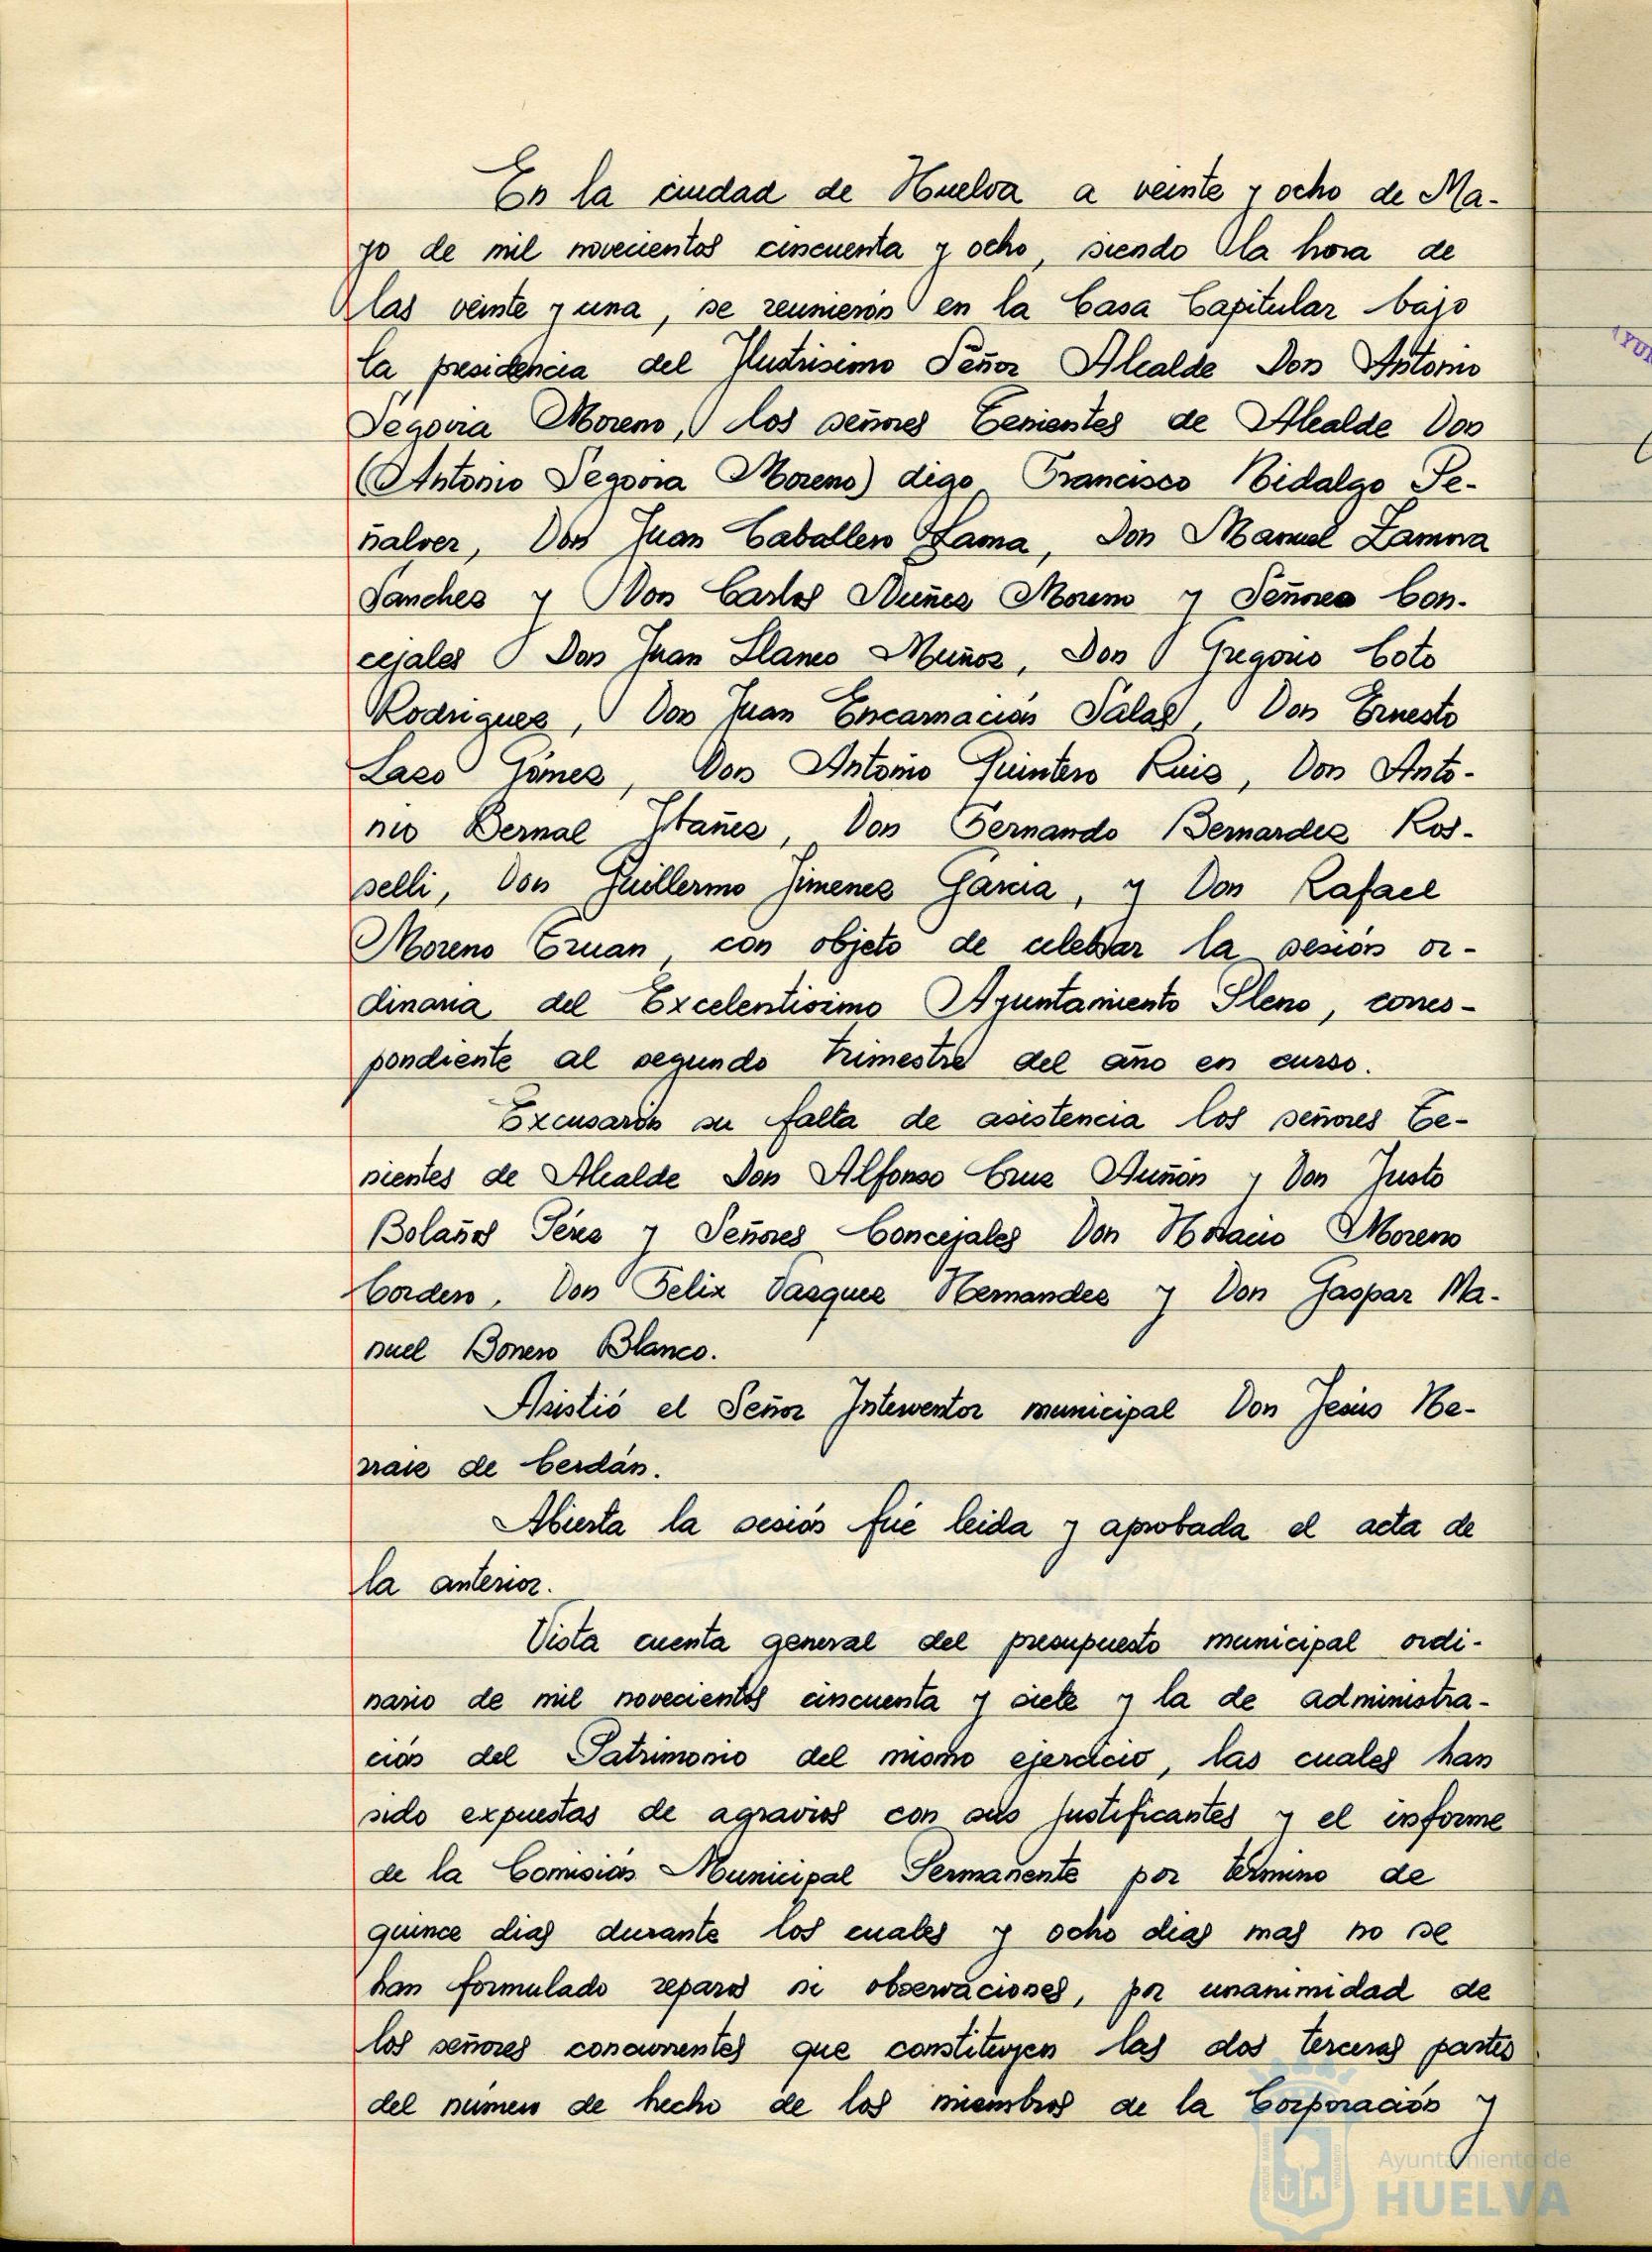 En la ciudad de Huelva a veinte y ocho de Ma-
yo de mil novecientos cincuenta y ocho, siendo la hora de
las veinte y una, se reunieron en la Casa Capitular bajo
la presidencia del Ilustrisimo Señor Alcalde Don Antonio
Segovia Moreno, los señores Tenientes de Alcalde Don
(Antonio Segovia Moreno) digo Francisco Hidalgo Pe-
ñalver, Don Juan Caballero Lama, Don Manuel Zamora
Sanchez y Don Carlos Nuñez Moreno y Señores Con-
cejales Don Juan Llanes Muñoz, Don Gregorio Coto
Rodriguez, Don Juan Encarnación Salas, Don Ernesto
Lazo Gómez, Don Antonio Quintero Ruiz, Don Anto-
nio Bernal Ibañez, Don Fernando Bernardez Ros-
selli, Don Guillermo Jimenez Garcia, y Don Rafael
Moreno Truan, con objeto de celebrar la sesión or-
dinaria del Excelentisimo Ayuntamiento Pleno, corres-
pondiente al segundo trimestre del año en curso.
Excusaron su falta de asistencia los señores Te-
nientes de Alcalde Don Alfonso Cruz Auñón y Don Justo
Bolaños Pérez y Señores Concejales Don Horacio Moreno
Cordero, Don Felix Vazquez Hernandez y Don Gaspar Ma-
nuel Bonero Blanco.
Asistió el Señor Interventor municipal Don Jesús He-
rraiz de Cerdán.
Abierta la sesión fué leida y aprobada el acta de
la anterior.
Vista cuenta general del presupuesto municipal ordi-
nario de mil novecientos cincuenta y siete y la de administra-
ción del Patrimonio del mismo ejercicio, las cuales han
sido expuestas de agravios con sus justificantes y el informe
de la Comisión Municipal Permanente por término de
quince dias durante los cuales y ocho dias mas no se
han formulado reparos ni observaciones, por unanimidad de
los señores concurrentes que constituyen las dos terceras partes
del número de hecho de los miembros de la Corporación y
Ayuntamiento de
HUELVA